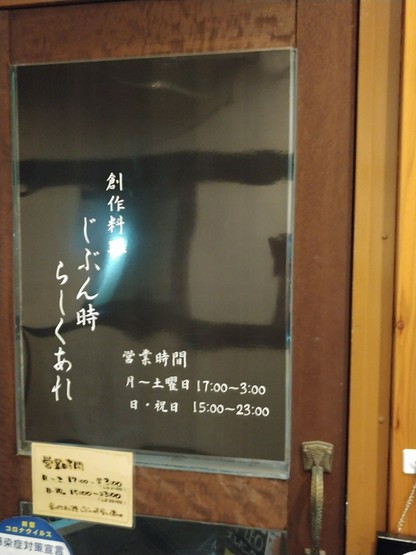 創作料理
じぶん時
らしくあれ
営業時間
月〜土曜日 17:00〜3:00
日・祝日 15:00〜23:00
営業時間
新型
コロナウイルス
感染症対策宣言